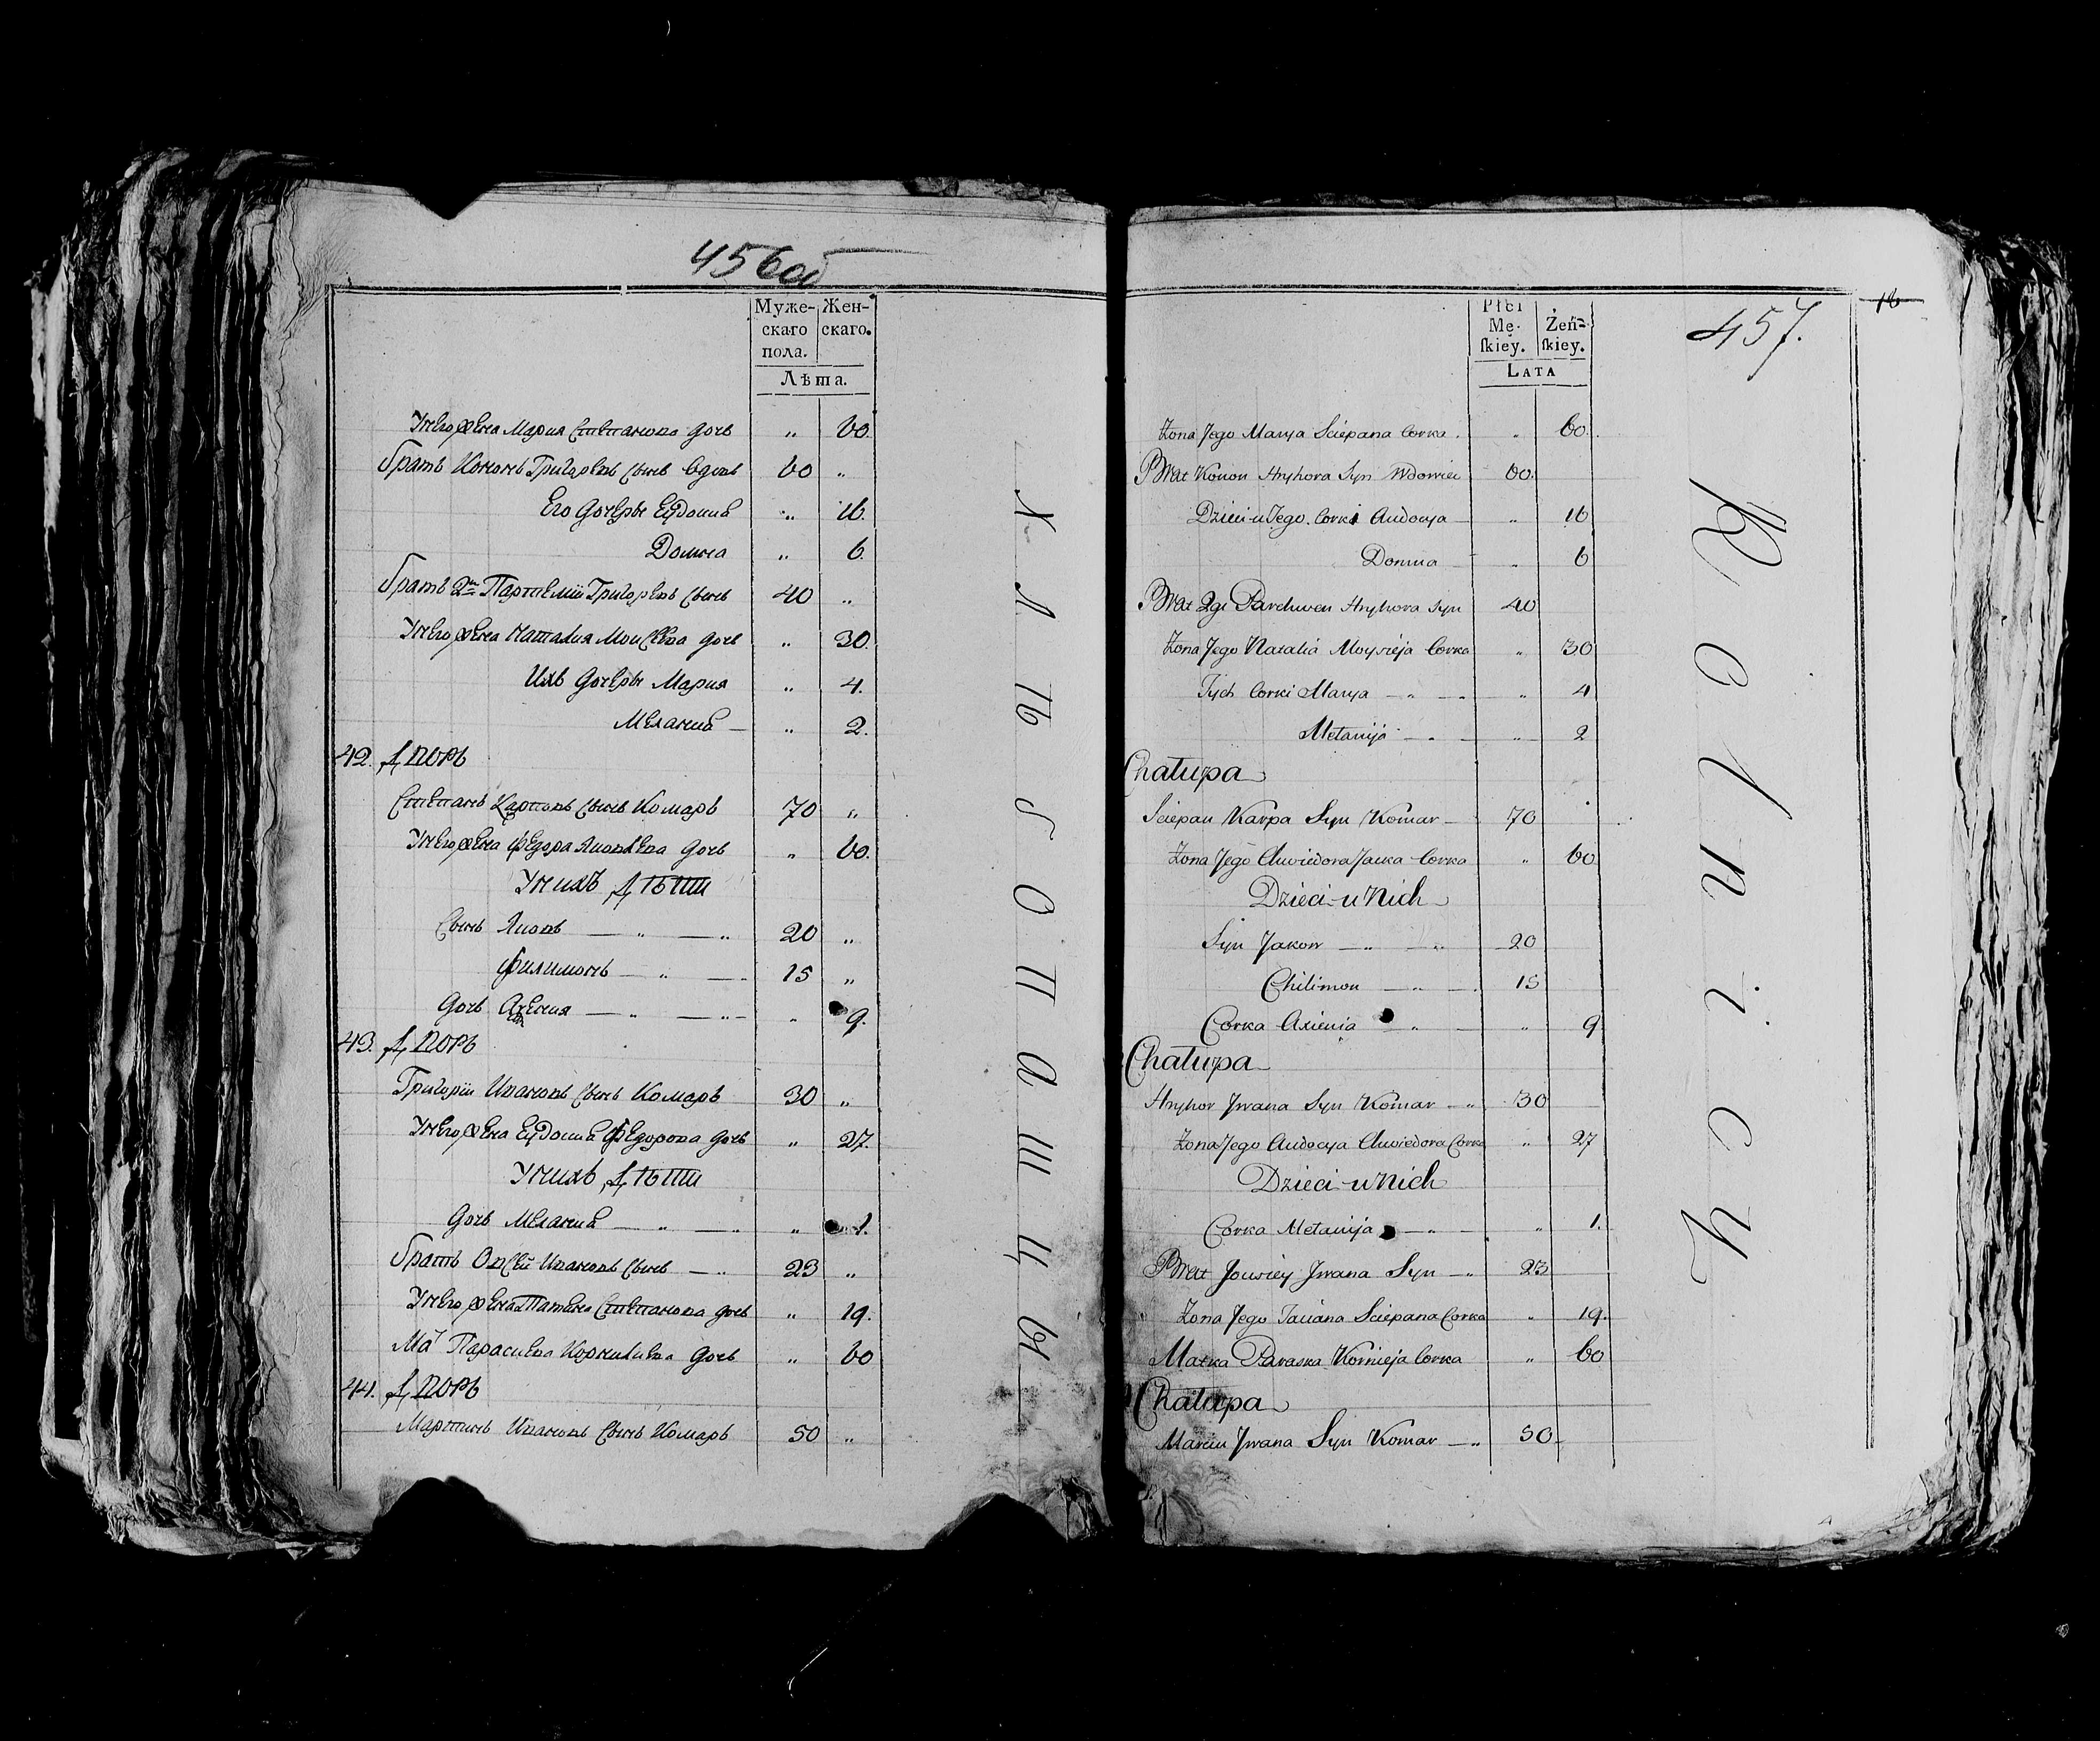 456об
Муже- Жен-
скаго скаго.
пола.
Лѣта.
У него жена Мария Степанова дочь „ 60.
Братъ Кононъ Григоревъ сынъ вдовъ 60 „
Его дочеры Еўдокия „ 16.
Домна „ 6.
Братъ 2й Партемий Григоревъ сынъ 40 „
У него жена Наталия Моисѣева дочь „ 30.
Ихъ дочеры Мария „ 4.
Мелания — „ 2.
42. Дворъ
Степанъ Карповъ сынъ Комаръ 70 „
У него жена Федора Яковлева дочь „ 60.
У нихъ Дѣти
Сынъ Яковъ — „ — „ 20 „
Филимонъ — „ — 15 „
Дочь Аксения — „ — „ „ 9.
43. Дворъ
Григорий Ивановъ сынъ Комаръ 30 „
У него жена Еўдокия Федорова дочь „ 27.
У нихъ Дѣти
Дочь Мелания — „ — „ „ 1.
Братъ Овсей Ивановъ сынъ — „ 23 „
У него жена Татьяна Степанова дочь „ 19.
Мат Параскева Корнилиева дочь „ 60
44. Дворъ
Мартинъ Ивановъ сынъ Комаръ 50 „
Хлѣбопашцы
457.
16
Płci
Mę- Żeń-
skiey. skiey.
LATA
Zona Jego Marya Sciepana Corka . „ 60.
Brat Konon Hryhora Syn Wdowiec 60.
Dzieci u Jego Corki Audocya — „ 16
Domna — „ 6
Brat 2gi Parchwen Hryhora Syn 40
Zona Jego Natalia Moysieja Corka „ 30
Tych Corki Marya — „ — „ 4
Mełanija — „ — „ 2
Chałupa
Sciepan Karpa Syn Komar — 70
Zona Jego Chwiedora Jacka Corka „ 60
Dzieci u Nich
Syn Jakow — „ — „ 20
Chilimon — „ — 15
Corka Axienia — „ — „ 9
Chałupa
Hryhor Jwana Syn Komar — „ 30
Zona Jego Audocya Chwiedora Corka „ 27
Dzieci u Nich
Corka Mełanija — „ — „ 1.
Brat Jousiey Jwana Syn — „ 23
Zona Jego Taciana Sciepana Corka „ 19.
Matka Paraska Kornieja Corka „ 60
Chałupa
Marcin Jwana Syn Komar — „ 50
Rolnicy